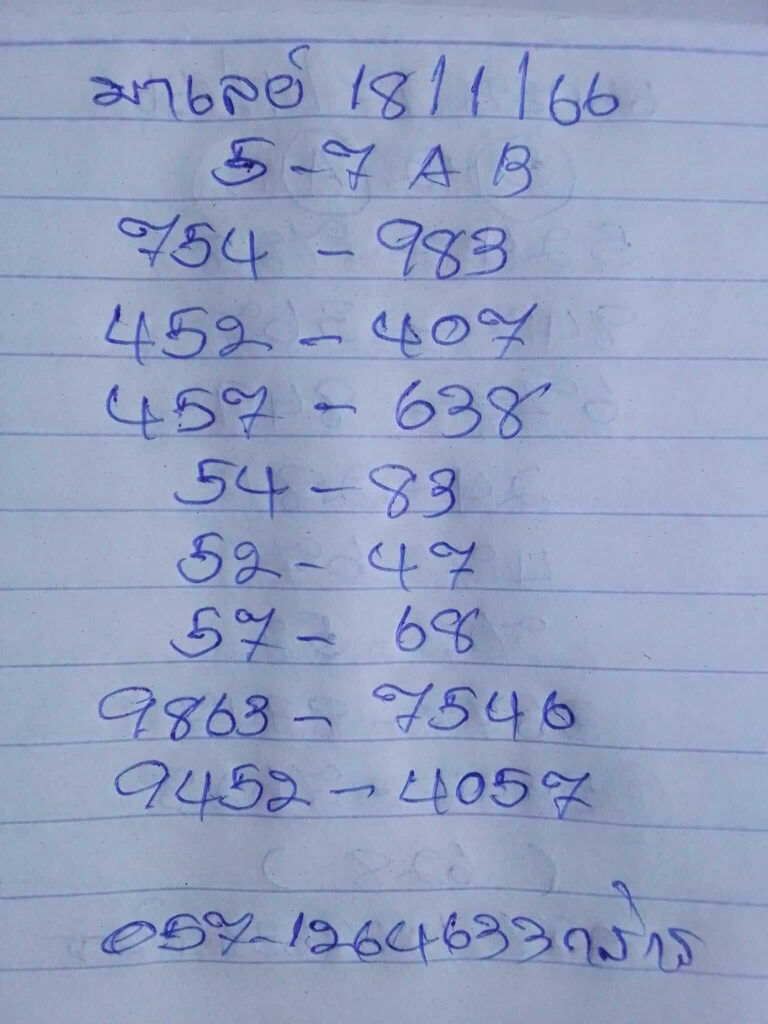 มาเลย์ 18/1/66
5-7 A B
754 - 983
452 - 407
457 - 638
54 - 83
52 - 47
57 - 68
9863 - 7546
9452 - 4057
057-1264633